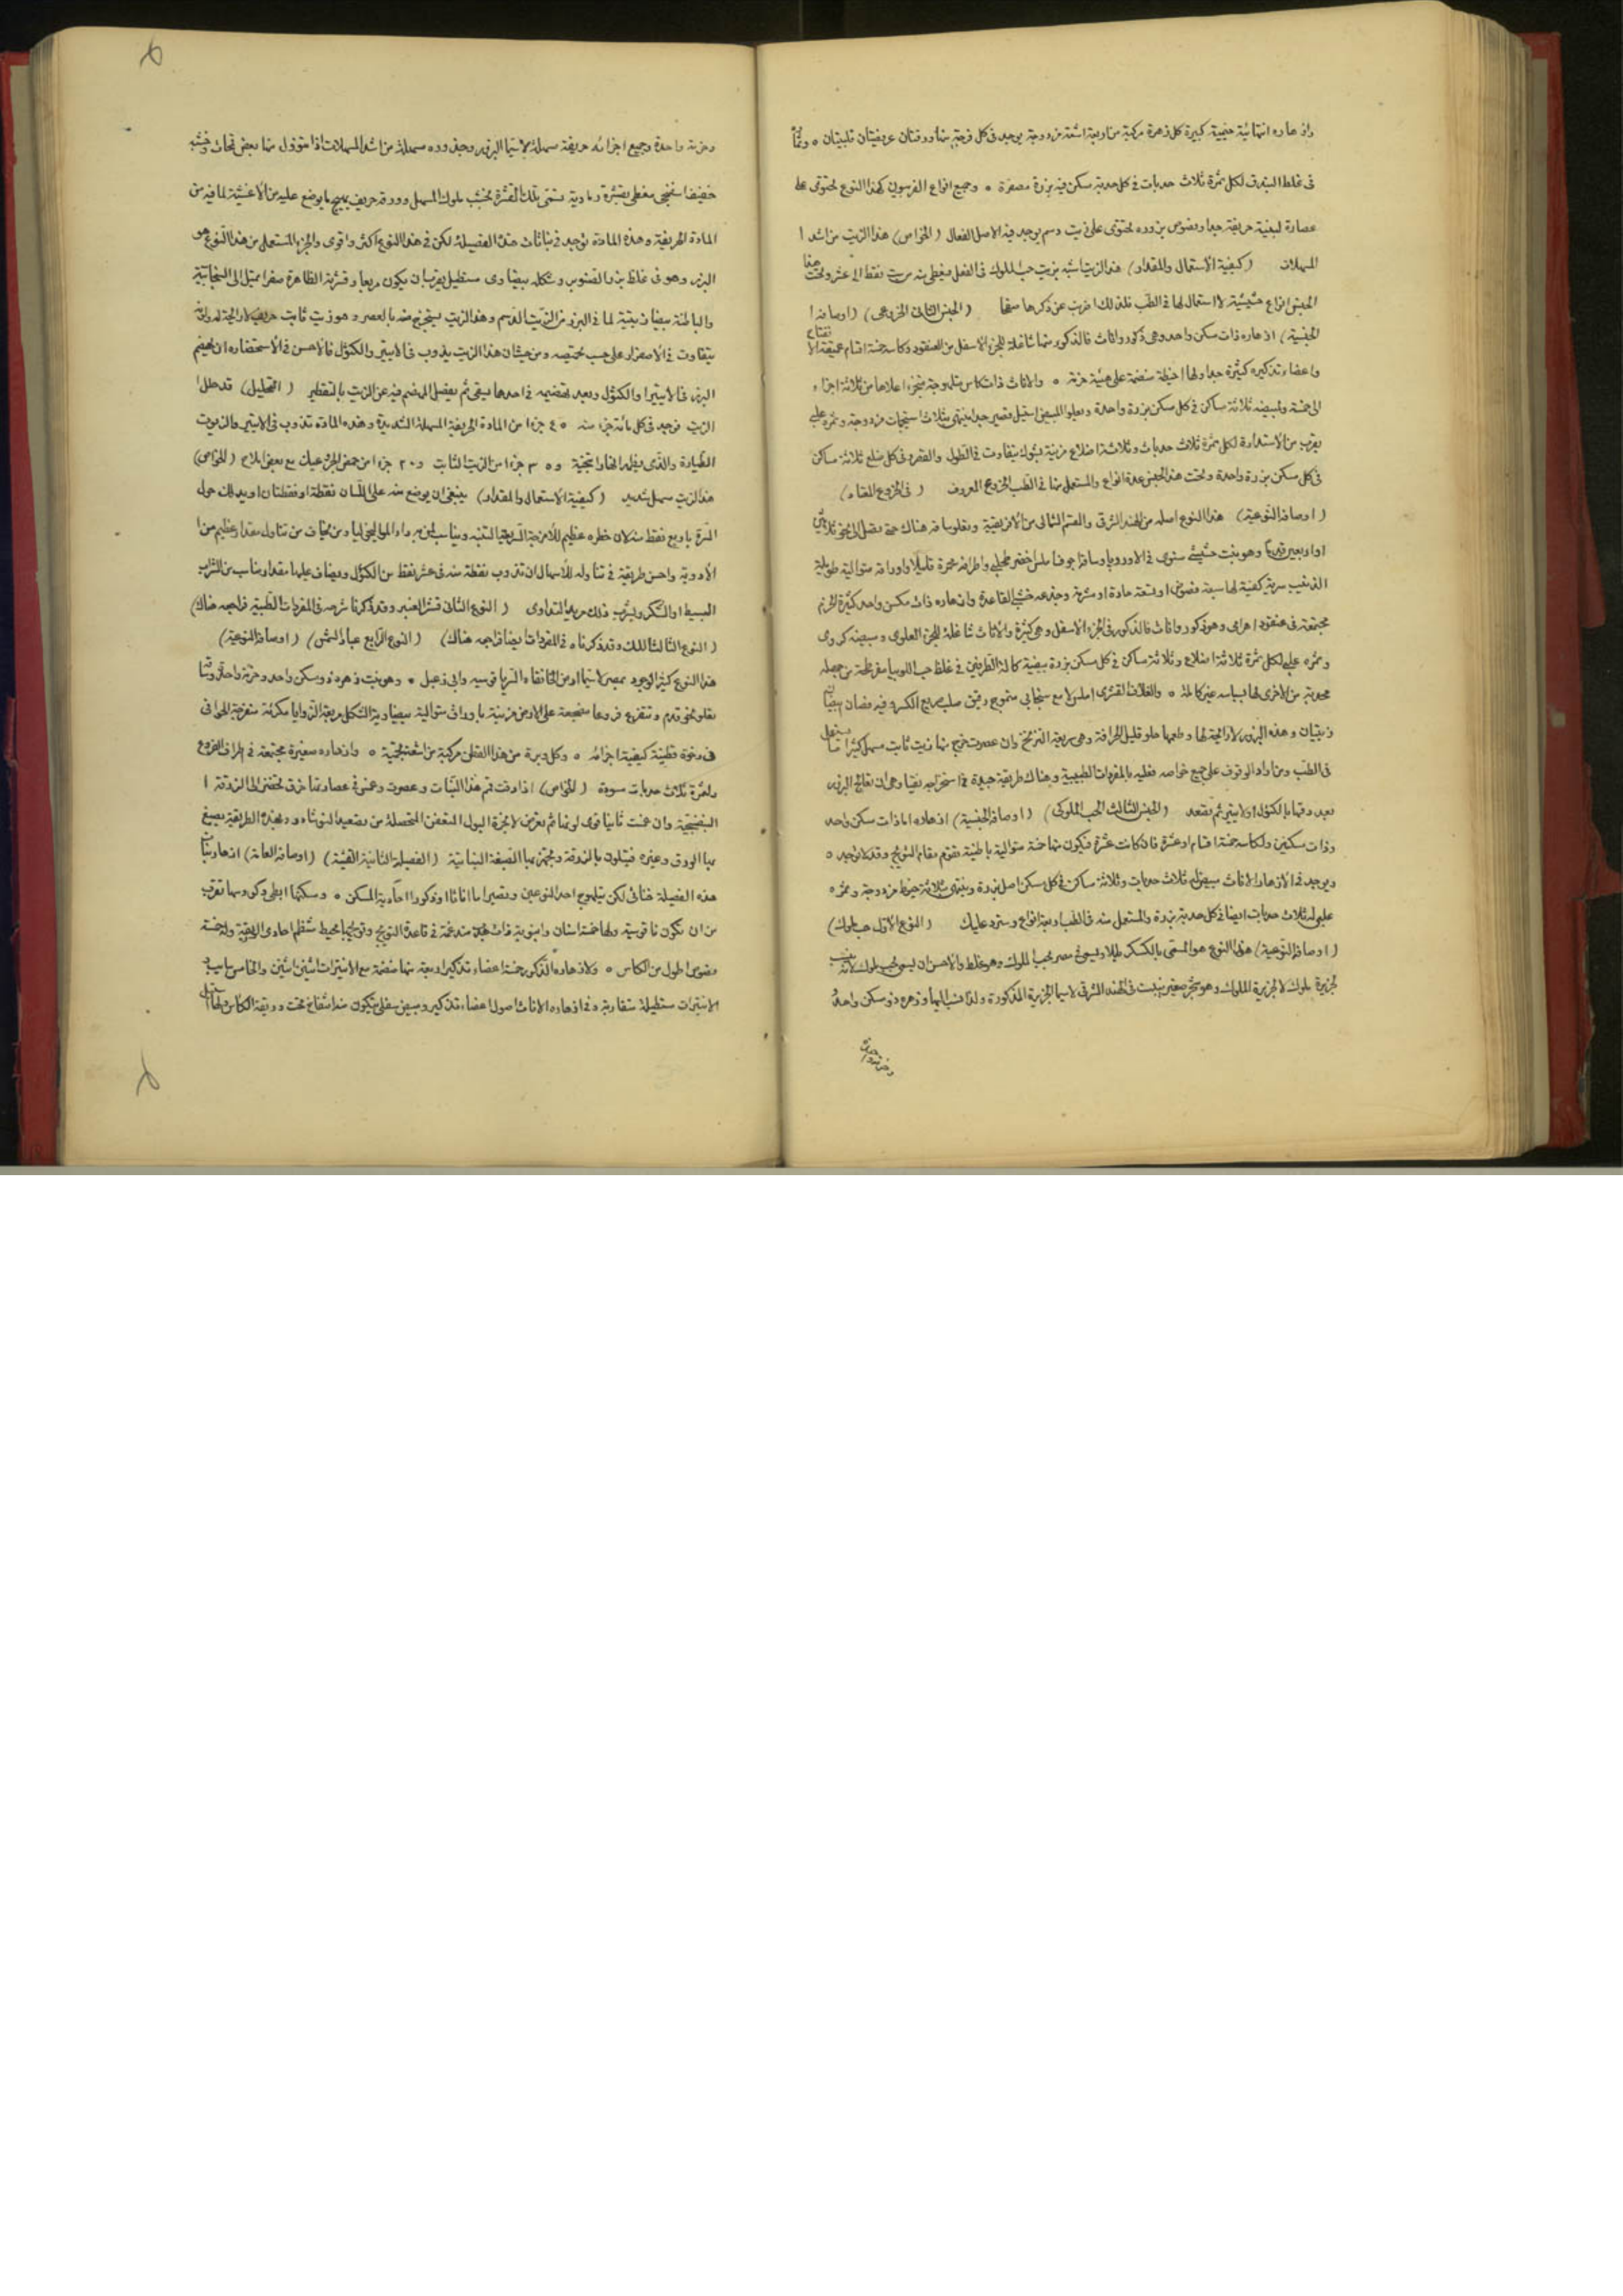 وازهاره انتهائية خيمية كبيرة كل زهرة مركبة من اربعة اشعة مزدوجة يوجد في كل فرجة منها ورقتان عريضتان قلبيتان ٥
في غلظ البندق لكل ثمرة ثلاث حدبات في كل حدبة سكن فيه بزرة مصفرة ٥ وجميع انواع الفربيون كهذا النوع تحتوي على
عصارة لبنية حريفة جدا وفصوص بزوره تحتوي على زيت دسم يوجد فيه الاصل الفعال (الخواص) هذا الزيت من اشد ا
لمسهلات (كيفية الاستعمال والمقدار) هذا الزيت اشبه بزيت حب الملوك في الفعل فيعطى منه من ست نقط الى عشر وتحت هذا
الجنس انواع حشيشية لا استعمال لها في الطب فلذلك اضربت عن ذكرها صفحا (الجنس الثاني الخروعي) (اوصافه ا
لجنسية) ازهاره ذات سكن واحد وهي ذكور واناث فالذكور منها شاغلة للجزء الاسفل من العنقود وكاسه خمسة اقسام عميقة الا
واعضاء تذكيره كثيرة جدا ولها اخيطة منضمة على هيئة حزمة ٥ والاناث ذات كاس متجزء اعلاها من ثلاثة اجزاء
الى خمسة ولمبيضه ثلاثة مساكن في كل سكن بزرة واحدة ويعلو المبيض استيل قصير جدا ينتهي بثلاث استجمات مزدوجة وثمره علبي
يقرب من الاستدارة لكل ثمرة ثلاث حدبات وثلاثة اضلاع مزينة بشوك يتفاوت في الطول والقصر وفي كل ضلع ثلاثة مساكن
في كل سكن بزرة واحدة وتحت هذا الجنس عدة انواع والمستعمل منها في الطب الخروع المعروف (في الخروع المعتاد)
(اوصافه النوعية) هذا النوع اصله من الهند الشرقي والقسم الشمالي من الافريقية ويعلو ساقه هناك حتى يصل الى نحو ثلاثين
او اربعين قدما وهو نبت حشيشي سنوي في الاوروبا وساقه اجوف املس اخضر واطرافه محمرة قليلا واوراقه متوالية طويلة
الذنيب سرية كفية لها سبعة فصوص او تسعة حادة او مشرفة وجذعه خشبي القاعدة وازهاره ذات مسكن واحد كثيرة الحزم
مجتمعة في عنقود اهرامي وهو ذكور واناث فالذكور في الجزء الاسفل وهي كثيرة والاناث شاغلة للجزء العلوي ومبيضه كروي
وثمره علبي لكل ثمرة ثلاثة اضلاع وثلاثة مساكن في كل سكن بزرة بيضية كالة الطرفين في غلظ حب اللوبيا مفرطحة من جهة
محدبة من الاخرى لها بسباسة غير كاملة ٥ والغلاف القشري املس لامع سنجابي متموج رقيق صلب سريع الكسر فيه فصان ابيضان
زيتيان وهذه البزور لا رائحة لها وطعمها حلو قليل الحرافة وهي سريعة التزنخ وان عصرت خرج منها زيت ثابت مسهل كثيرا ما يستعمل
في الطب ومن اراد الوقوف على جميع خواصه فعليه بالمفردات الطبية وهناك طريقة جيدة في استخراجه نقيا وهي ان تعالج البزور
بعد دقها بالكؤل او الايتير ثم تصعد (الجنس الثالث الحب الملوكي) (اوصافه الجنسية) ازهاره اما ذات سكن واحد
وذات سكنين ولكاسه خمسة اقسام او عشرة فان كانت عشرة فيكون منها خمسة متوالية باطنية تقوم مقام التويج وقد لا توجد ٥
ويوجد في الازهار الاناث مبيض له ثلاث حدبات وثلاثة مساكن في كل سكن اصل بزرة وينتهي بثلاثة خيوط مزدوجة وثمره
علبي له ثلاث حدبات ايضا في كل حدبة بزرة والمستعمل منه في الطب اربعة انواع وسترد عليك (النوع الاول حب ملوك)
(اوصافه النوعية) هذا النوع هو المسمى ويسمى في مصر بحب الملوك وهو غلط والاحسن ان يسمى بحب ملوك لانه نسب
لجزيرة ملوك لا لجزيرة الملوك وهو شجر صغير ينبت في الهند الشرقي لا سيما الجزيرة المذكورة ولذا نسب اليها وزهره ذو سكن واحد
وحزمة واحدة وجميع اجزائه حريفة مسهلة لا سيما البزور وجذوره مسهلة من اشد المسهلات اذا تنوول منها بعض قمحات وخشبه
خفيف اسفنجي مغطى بقشرة رمادية تسمى تلك القشرة بخشب ملوك المسهل وورقه حريف يهيج ما يوضع عليه من الاغشية لما فيه من
المادة الحريفة وهذه المادة توجد في نباتات هذه الفصيلة لكن في هذا النوع اكثر واقوى والجزء المستعمل من هذا النوع هو
البزر وهو في غلظ بزر الصنوبر وشكله بيضاوي مستطيل يقرب ان يكون مربعا وقشرته الظاهرة صفراء تميل الى السنجابية
والباطنة بيضاء زيتية لما في البزر من الزيت الدسم وهذا الزيت يستخرج منه بالعصر وهو زيت ثابت حريف لا رائحة له ولونه
يتفاوت في الاصفرار على حسب تحميصه ومن حيث ان هذا الزيت يذوب في الايتير والكؤل فالاحسن في استحضاره ان يهضم
البزر في الايتير او الكؤل وبعد تهضيمه في احدهما يصفى ثم يفصل المنهضم فيه عن الزيت بالتقطير (التحليل) قد حلل ا
لزيت فوجد في كل مائة جزء منه ٤٥ جزءا من المادة الحريفة المسهلة الشديدة وهذه المادة تذوب في الايتير والزيوت
الطيارة و ٣٥ جزءا من الزيت الثابت و ٢٠ جزءا من حمض مع بعض املاح (الخواص)
هذا الزيت مسهل شديد (كيفية الاستعمال والمقدار) ينبغي ان يوضع منه على اللسان نقطة او نقطتان او يدلك حول
السرة باربع نقط منه لان خطره عظيم للامزجة السريعة التنبه ويناسب لمن به داء الماليخوليا ومن يخاف من تناول مقدار عظيم من ا
لادوية واحسن طريقة في تناوله للاسهال ان تذوب نقطة منه في عشر نقط من الكؤل ويضاف عليها مقدار مناسب من الشراب
البسيط او السكر ويشرب ذلك مريد التداوي (النوع الثاني قشر العنبر وقد ذكرنا شرحه في المفردات الطبية فراجعه هناك)
(النوع الثالث اللك وقد ذكرناه في المفردات ايضا فراجعه هناك) (النوع الرابع عباد الشمس) (اوصافه النوعية)
هذا النوع كثير الوجود بمصر لا سيما ارض الخانقاه السرياقوسية وابي زعبل ٥ وهو نبت زهره ذو سكن واحد وحزمة واحدة وساقه
يعلو نحو قدم وتتفرع فروعا مضجعة على الارض مزينة باوراق متوالية بيضاوية الشكل مربعة الزوايا مكرشة منفرجة الحوافي
فيه رخوة قطنية كيفية اجزائه ٥ وكل وبرة من هذا القطن مركبة من اشعة نجمية ٥ وازهاره صغيرة مجتمعة في اطراف الفروع
ولثمره ثلاث حدبات سودة (الخواص) اذا دقت قمم هذا النبات وعصرت وغمس في عصارتها خرق تخضر الى الزرقة ا
لبنفسجية وان غمست ثانيا قوي لونها ثم تعرض لابخرة البول المتعفن المتحصلة من تصعيد النوشادر وبهذه الطريقة يصبغ
بها الورق وغيره فيتلون بالزرقة وتجهز بها الصبغة النباتية (الفصيلة الثانية القثية) (اوصافها العامة) ازهار نبات
هذه الفصيلة خناثى لكن يتلهوج احد النوعين وتصير اما اناثا او ذكورا احادية المسكن ٥ ومسكنها ابطي وكورسها تقرب
من ان تكون ناقوسية ولها خمسة اسنان وانبوبة ذات هيئة مندغمة في قاعدة التويج وتويجها محيط منتظم احادي الورقة وله خمسة
فصوص اطول من الكاس ٥ ولازهاره الذكور خمسة اعضاء تذكير اربعة منها منضمة مع الانتيرات اثنين اثنين والخامس سايب و
الانتيرات مستطيلة متقاربة وفي ازهاره الاناث اصول اعضاء تذكير ومبيض سفلي يتكون منه انتفاخ تحت وريقة الكاس